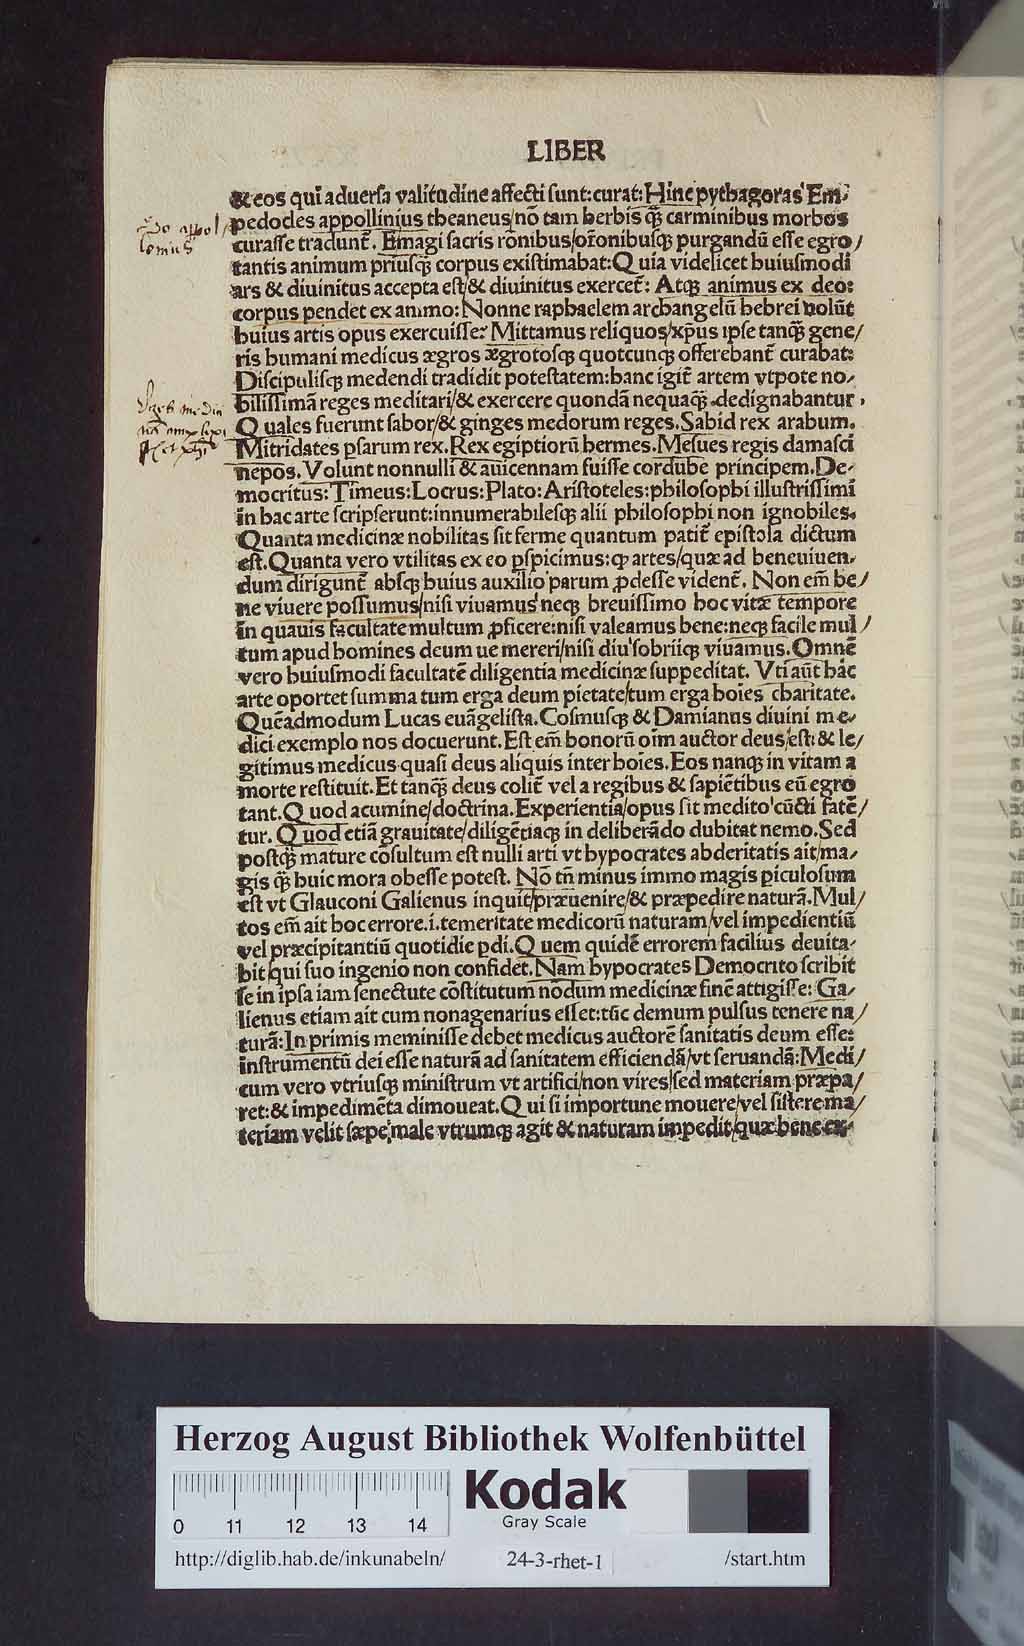 LIBER
& eos qui aduersa valitudine affecti sunt: curat: Hinc pythagoras Em-
pedocles appollinius theaneus/nō tam herbis q̄ꝫ carminibus morbos
curasse tradunt̄. Emagi sacris rōnibus/or̄onibusqꝫ purgandū esse egro/
tantis animum priusqꝫ corpus existimabat: Quia videlicet huiusmodi
ars & diuinitus accepta est/& diuinitus exercet̄: Atqꝫ animus ex deo:
corpus pendet ex animo: Nonne raphaelem archangelū hebrei volūt
huius artis opus exercuisse? Mittamus reliquos/xp̄us ipse tanq̄ꝫ gene/
ris humani medicus ægros ægrotosqꝫ quotcunqꝫ offerebant̄ curabat:
Discipulisqꝫ medendi tradidit potestatem: hanc igit̄ artem vtpote no-
bilissimā reges meditari/& exercere quondā nequaq̄ꝫ dedignabantur.
Quales fuerunt sabor/& ginges medorum reges. Sabid rex arabum.
Mitridates psarum rex. Rex egiptiorū hermes. Mesues regis damasci
nepos. Volunt nonnulli & auicennam fuisse cordube principem. De-
mocritus: Timeus: Locrus: Plato: Aristoteles: philosophi illustrissimi
in hac arte scripserunt: innumerabilesqꝫ alii philosophi non ignobiles.
Quanta medicinæ nobilitas sit ferme quantum patit̄ epistola dictum
est. Quanta vero vtilitas ex eo ꝑspicimus: ꝙ artes/quæ ad beneuiuen-
dum dirigunt̄ absqꝫ huius auxilio parum ꝓdesse vident̄. Non em̄ be/
ne viuere possumus/nisi viuamus neqꝫ breuissimo hoc vitæ tempore
in quauis facultate multum ꝓficere: nisi valeamus bene: neqꝫ facile mul/
tum apud homines deum ue mereri/nisi diu sobriiqꝫ viuamus. Omnē
vero huiusmodi facultatē diligentia medicinæ suppeditat. Vti aūt hac
arte oportet summa tum erga deum pietate/tum erga hoīes charitate.
Quēadmodum Lucas euāgelista. Cosmusqꝫ & Damianus diuini me-
dici exemplo nos docuerunt. Est em̄ bonorū oīm auctor deus/est: & le/
gitimus medicus quasi deus aliquis inter hoīes. Eos nanqꝫ in vitam a
morte restituit. Et tanq̄ꝫ deus colit̄ vel a regibus & sapiētibus eū egro
tant. Quod acumine/doctrina. Experientia/opus sit medito cūcti fatē/
tur. Quod etiā grauitate/diligētiaqꝫ in deliberādo dubitat nemo. Sed
postq̄ꝫ mature cōsultum est nulli arti vt hypocrates abderitatis ait/ma-
gis q̄ꝫ huic mora obesse potest. Nō tn̄ minus immo magis ꝑiculosum
est vt Glauconi Galienus inquit/præuenire/& præpedire naturā. Mul/
tos em̄ ait hoc errore.i. temeritate medicorū naturam/vel impedientiū
vel præcipitantiū quotidie ꝑdi. Quem quidē errorem facilius deuita-
bit/qui suo ingenio non confidet. Nam hypocrates Democrito scribit
se in ipsa iam senectute cōstitutum nōdum medicinæ finē attigisse: Ga/
lienus etiam ait cum nonagenarius esset: tūc demum pulsus tenere na/
turā: In primis meminisse debet medicus auctorē sanitatis deum esse:
instrumentū dei esse naturā ad sanitatem efficiendā/vt seruandā: Medi/
cum vero vtriusqꝫ ministrum vt artifici/non vires/sed materiam præpa/
ret: & impedimēta dimoueat. Qui si importune mouere/vel sistere ma/
teriam velit sæpe/male vtrumqꝫ agit & naturam impedit/quæ bene ex-
Herzog August Bibliothek Wolfenbüttel
Kodak
Gray Scale
0 11 12 13 14
http://diglib.hab.de/inkunabeln/ 24-3-rhet-1 /start.htm